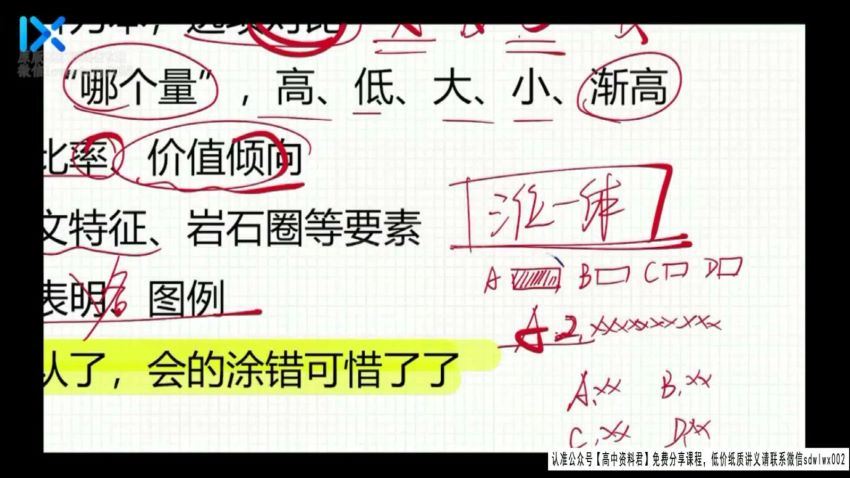 选项对比
“哪个量”，高、低、大、小、渐高
比率、价值倾向
文特征、岩石圈等要素
三位一体
A B C D
表明 图例
A.2.×××××××××
认了，会的涂错可惜了了
A.×× B.××
C.×× D.××
认准公众号【高中资料君】免费分享课程，低价纸质讲义请联系微信sdwlwx002